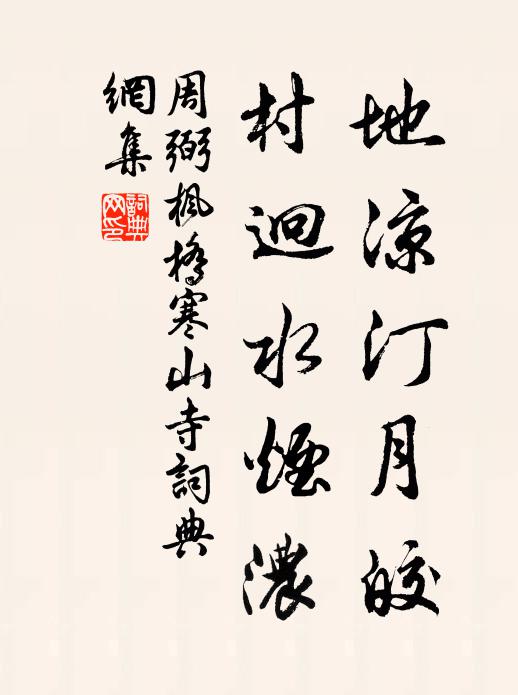 地凉汀月皎
村迥水煙濃
周弼楓橋寒山寺詞典
網集
詞典网印